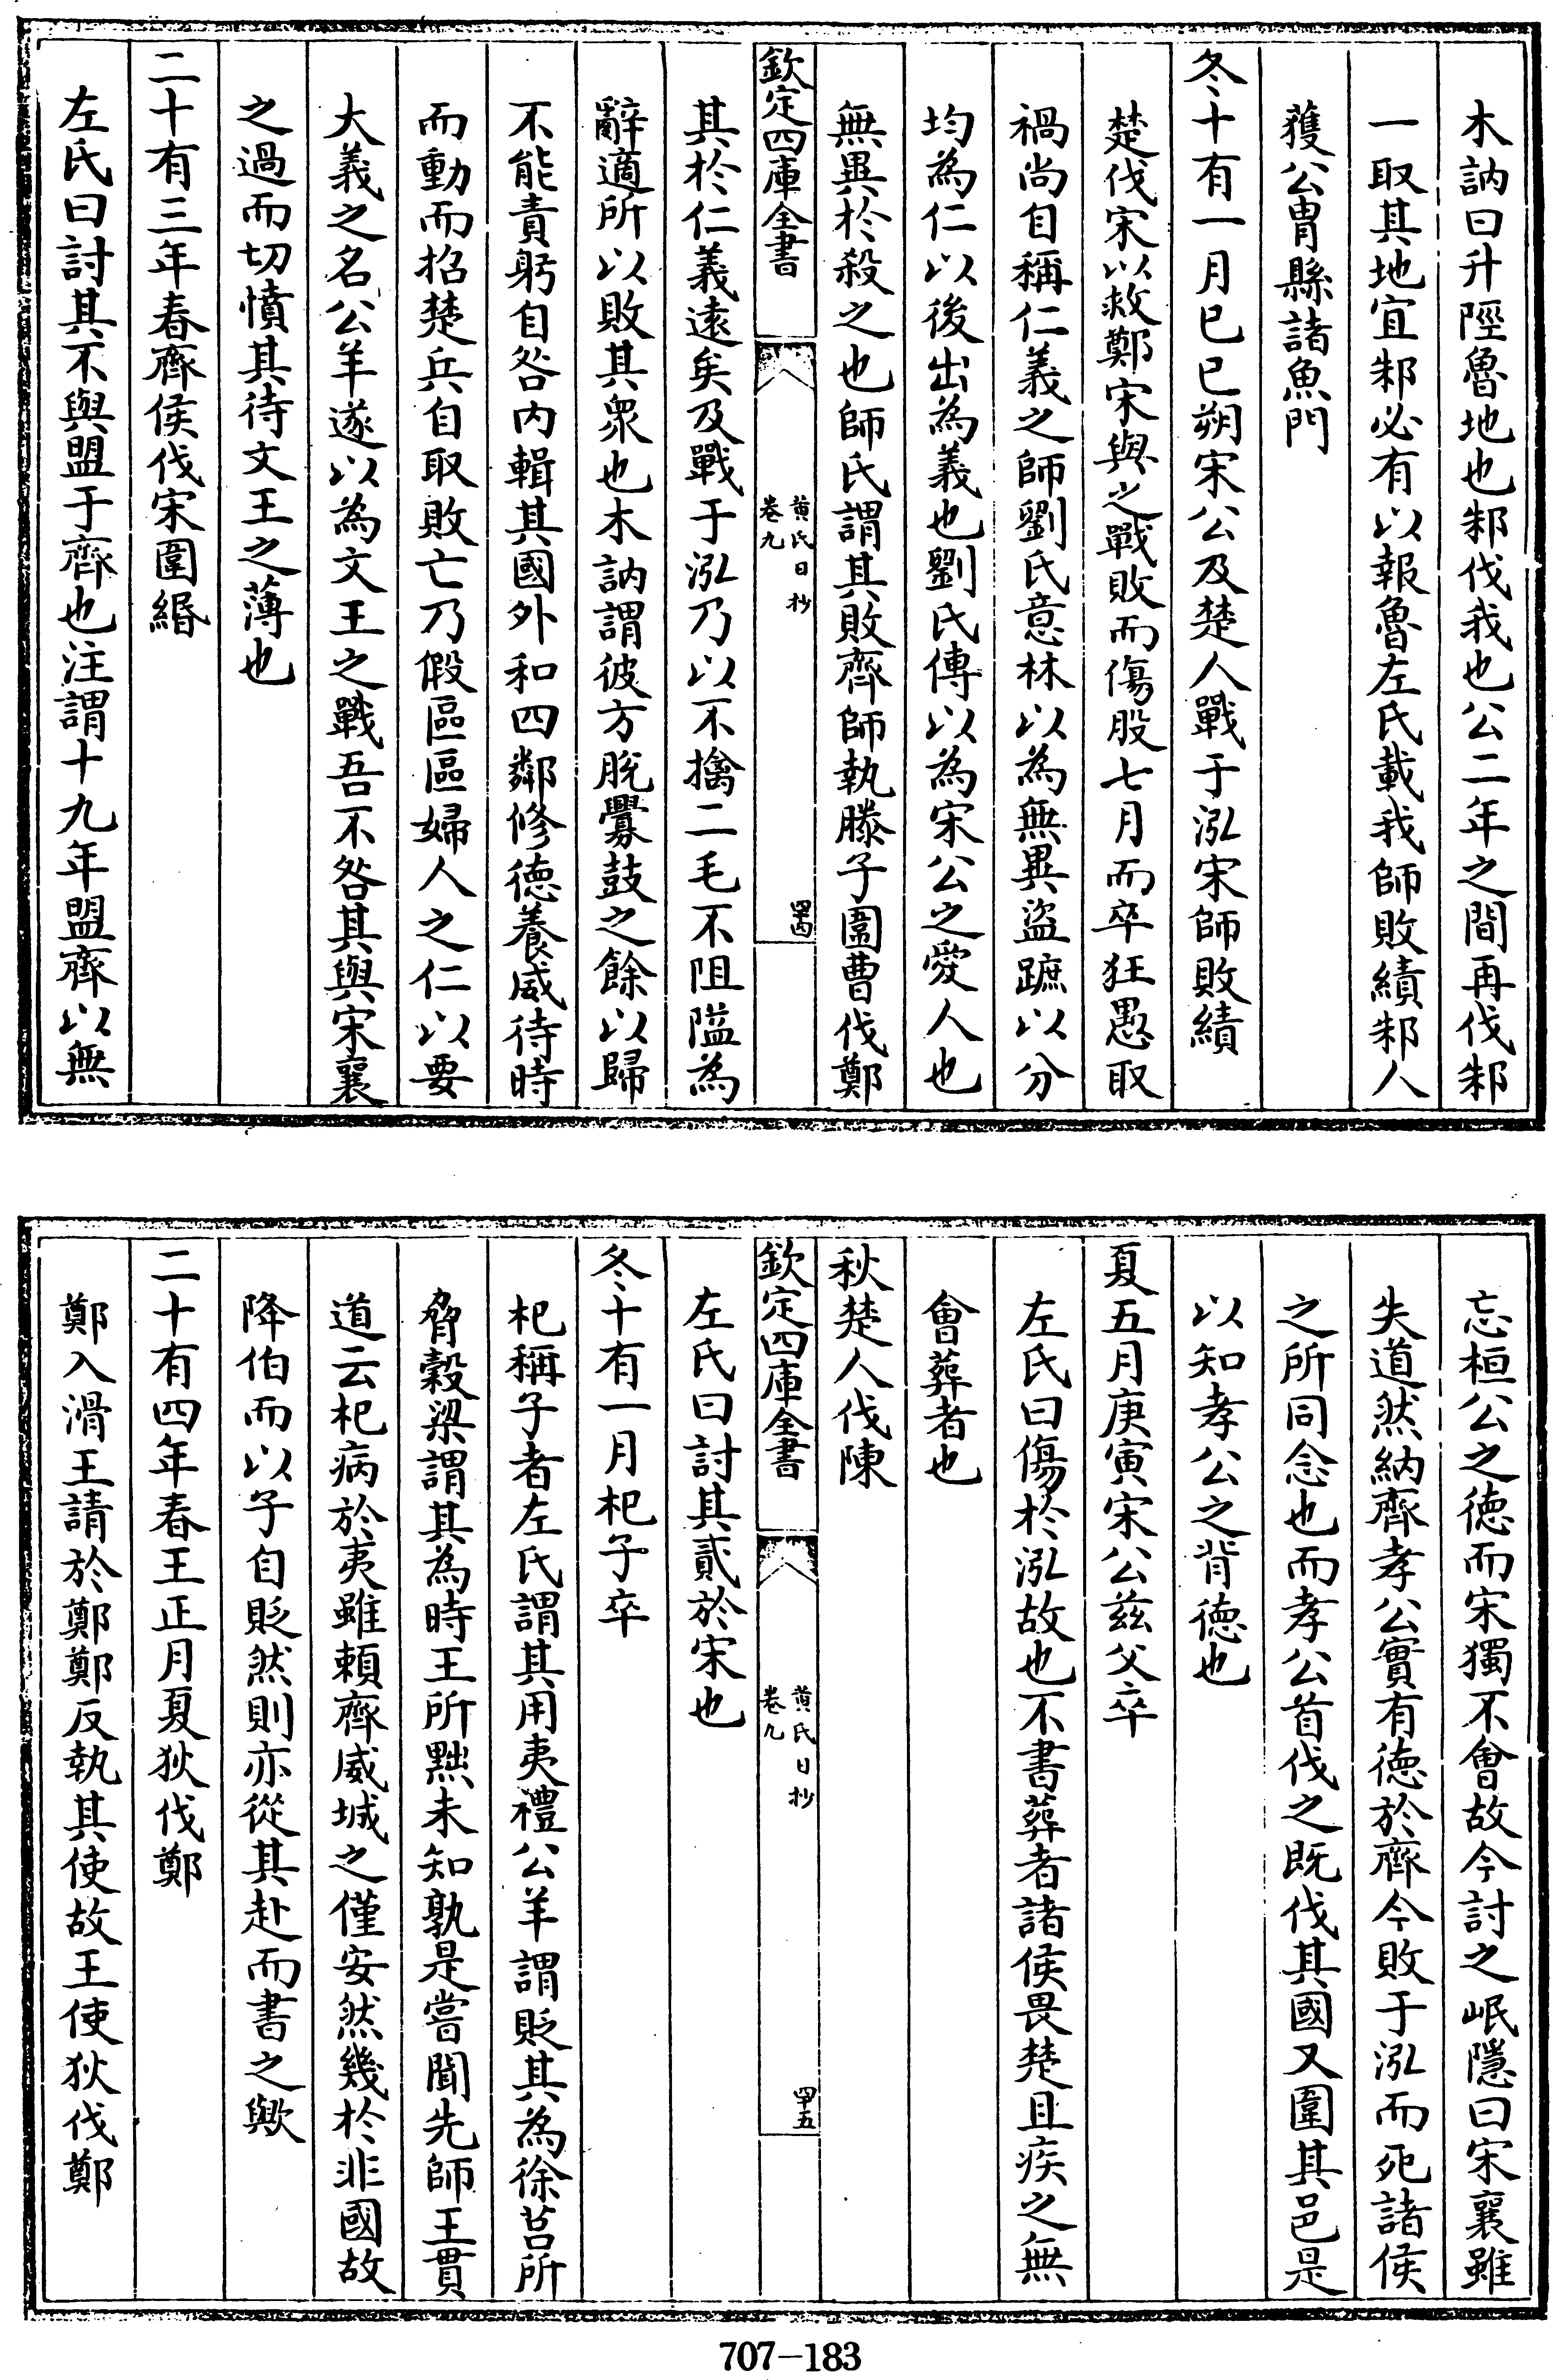 木訥曰升陘魯地也邾伐我也公二年之間再伐邾
一取其地宜邾必有以報魯左氏載我師敗績邾人
獲公冑縣諸魚門
冬十有一月已已朔宋公及楚人戰于泓宋師敗績
楚伐宋以救鄭宋與之戰敗而傷股七月而卒狂愚取
禍尚自稱仁義之師劉氏意林以為無異盜蹠以分
均為仁以後出為義也劉氏傳以為宋公之愛人也
無異於殺之也師氏謂其敗齊師執滕子圍曹伐鄭
欽定四庫全書
黃氏日抄
卷九
四十四
其於仁義遠矣及戰于泓乃以不擒二毛不阻隘為
辭適所以敗其衆也木訥謂彼方脫釁鼓之餘以歸
不能責躬自咎内輯其國外和四鄰修徳養威待時
而動而招楚兵自取敗亡乃假區區婦人之仁以要
大義之名公羊遂以為文王之戰吾不咎其與宋襄
之過而切憤其待文王之薄也
二十有三年春齊侯伐宋圍緡
左氏曰討其不與盟于齊也注謂十九年盟齊以無
忘桓公之徳而宋獨不會故今討之岷隱曰宋襄雖
失道然納齊孝公實有徳於齊今敗于泓而死諸侯
之所同念也而孝公首伐之既伐其國又圍其邑是
以知孝公之背徳也
夏五月庚寅宋公兹父卒
左氏曰傷於泓故也不書葬者諸侯畏楚且疾之無
會葬者也
秋楚人伐陳
欽定四庫全書
黃氏日抄
卷九
四十五
左氏曰討其貳於宋也
冬十有一月杞子卒
杞稱子者左氏謂其用夷禮公羊謂貶其為徐莒所
脅穀梁謂其為時王所黜未知孰是嘗聞先師王貫
道云杞病於夷雖頼齊威城之僅安然幾於非國故
降伯而以子自貶然則亦從其赴而書之歟
二十有四年春王正月夏狄伐鄭
鄭入滑王請於鄭鄭反執其使故王使狄伐鄭
707-183